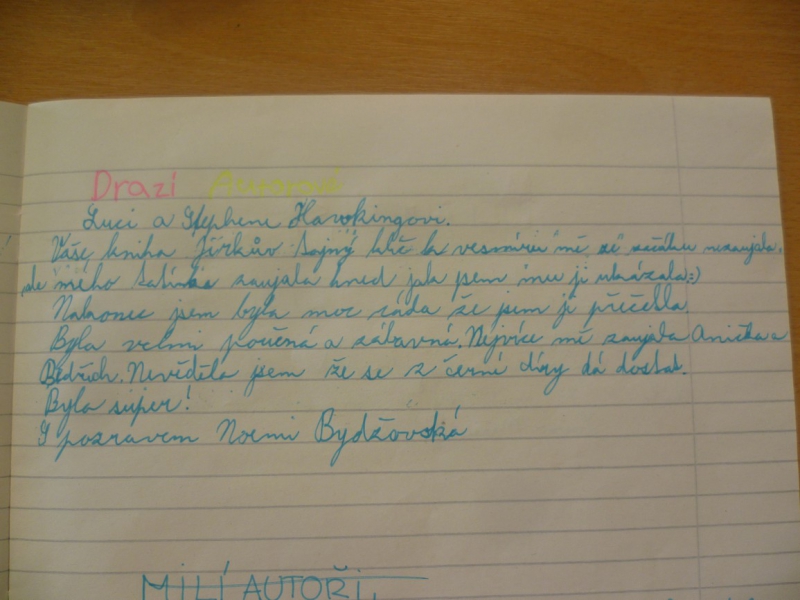 Drazí Autorové
Luci a Stephene Hawkingovi.
Vaše kniha "Jirkův tajný klíč k vesmíru" mě ze začátku nezaujala,
ale mého tatínka zaujala hned jak jsem mu ji ukázala:)
Nakonec jsem byla moc ráda že jsem ji přečetla
Byla velmi poučná a zábavná. Nejvíce mě zaujala Anička a
Bedřich. Nevěděla jsem že se z černé díry dá dostat.
Byla super!
S pozravem Noemi Bydžovská
MILÍ AUTOŘI,